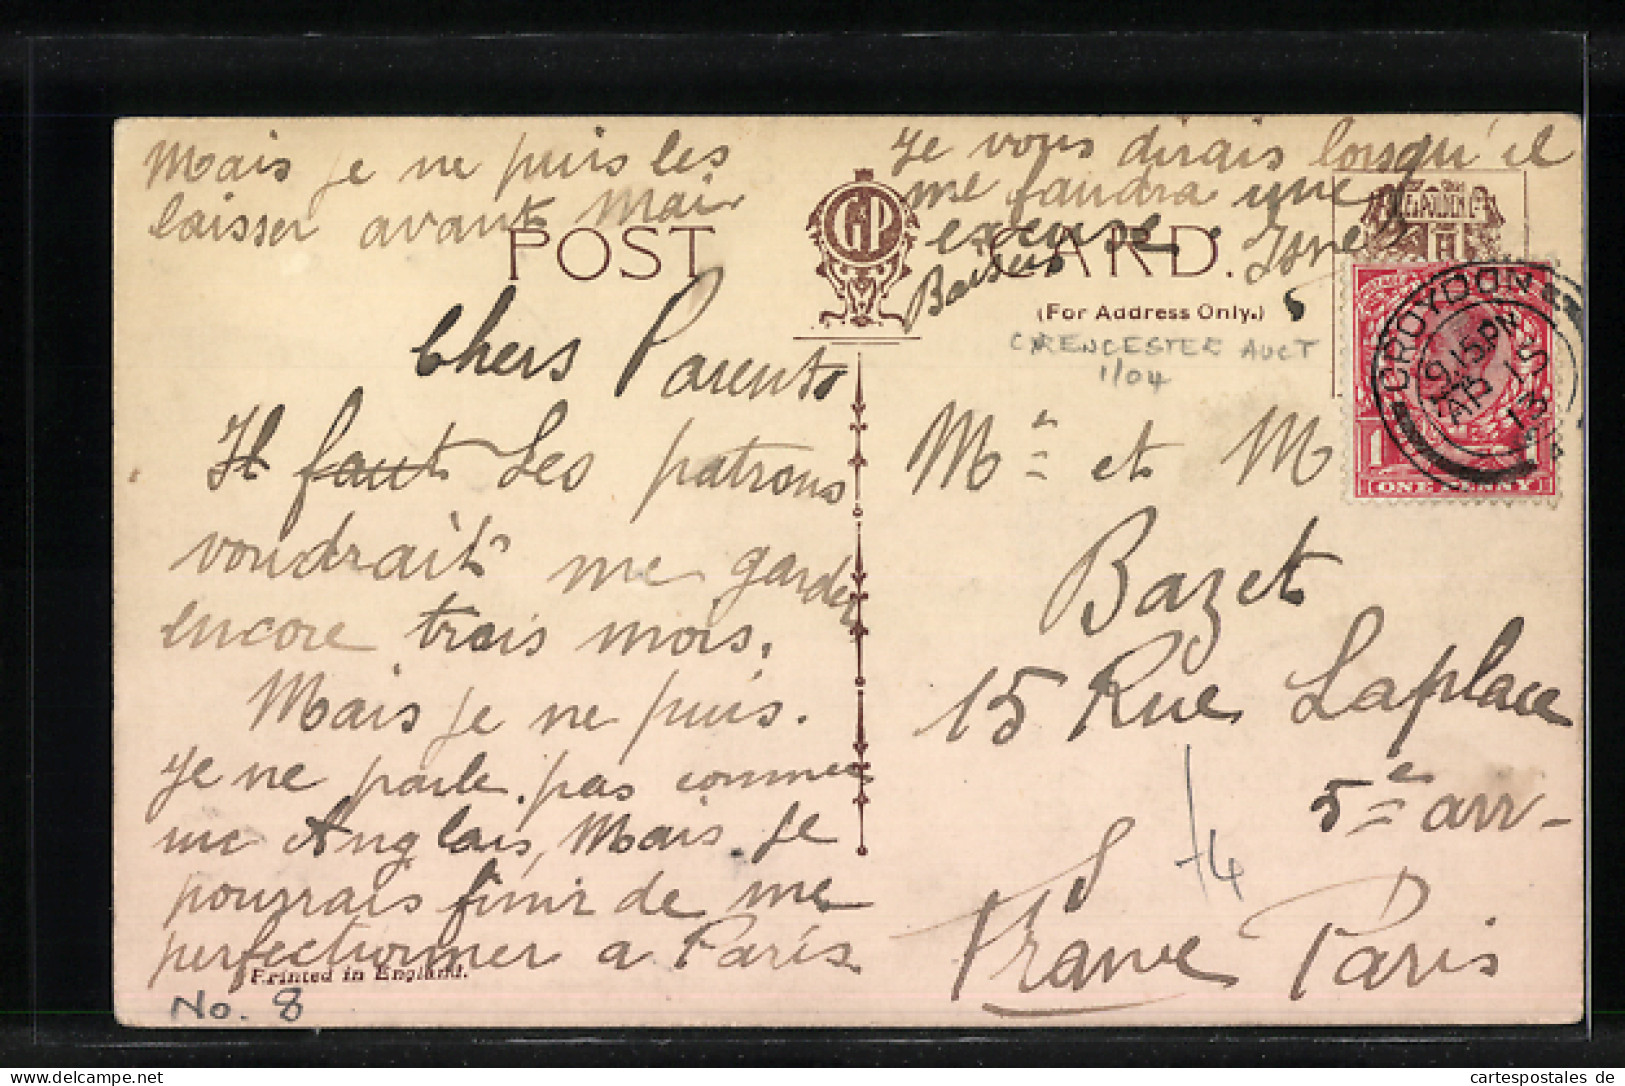 Mais je ne puis les
laisser avant Mai
Je vous dirais lorsqu'il
me faudra une
excuse.
Baisers
POST CARD.
G P
(For Address Only.)
CIRENCESTER AUCT
1/04
E.A. POLDEN Ld
CROYDON
9.15 PM
AP 15
13
1 1
ONE PENNY
Chers Parents
Il faut Les patrons
voudrait me garder
encore trois mois.
Mais je ne puis.
Je ne parle pas comme
une Anglais, Mais je
pourrais finir de me
perfectionner a Paris.
Printed in England.
No. 8
Me et M
Bazet
15 Rue Laplace
5e arr-
France Paris